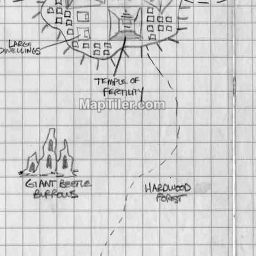 LARGE
DWELLINGS
TEMPLE OF
FERTILITY
MapTiler.com
GIANT BEETLE
BURROWS
HARDWOOD
FOREST